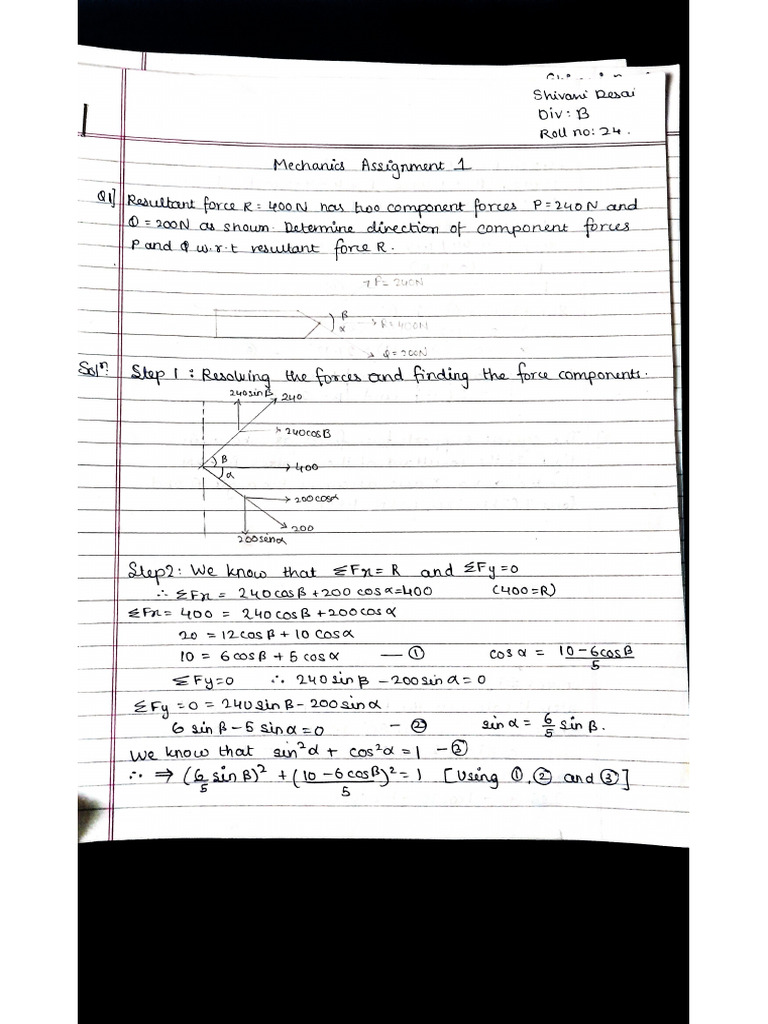 Shivani Desai
Div: B
Roll no: 24.
Mechanics Assignment 1
Q1] Resultant force R = 400N has two component forces P=240N and
Q = 200N as shown. Determine direction of component forces
P and Q w.r.t resultant force R.
P= 240N
β
α
R=400N
Q=200N
Solⁿ: Step 1: Resolving the forces and finding the force components.
240sinβ 240
240cosβ
β
400
α
200cosα
200
200sinα
Step2: We know that ΣFx= R and ΣFy=0
∴ ΣFx = 240cosβ+200 cosα=400 (400=R)
ΣFx= 400 = 240cosβ+200cosα
20 = 12cosβ + 10 cosα
10 = 6cosβ + 5 cosα — ① cosα = 10-6cosβ/5
ΣFy=0 ∴ 240sinβ -200sinα=0
ΣFy = 0 = 240sinβ- 200sinα
6 sinβ-5 sinα=0 - ② sinα= 6/5 sinβ.
We know that sin²α + cos²α =1 -③
∴ ⇒ (6/5 sinβ)² + (10-6cosβ/5)²=1 [Using ①,② and ③]